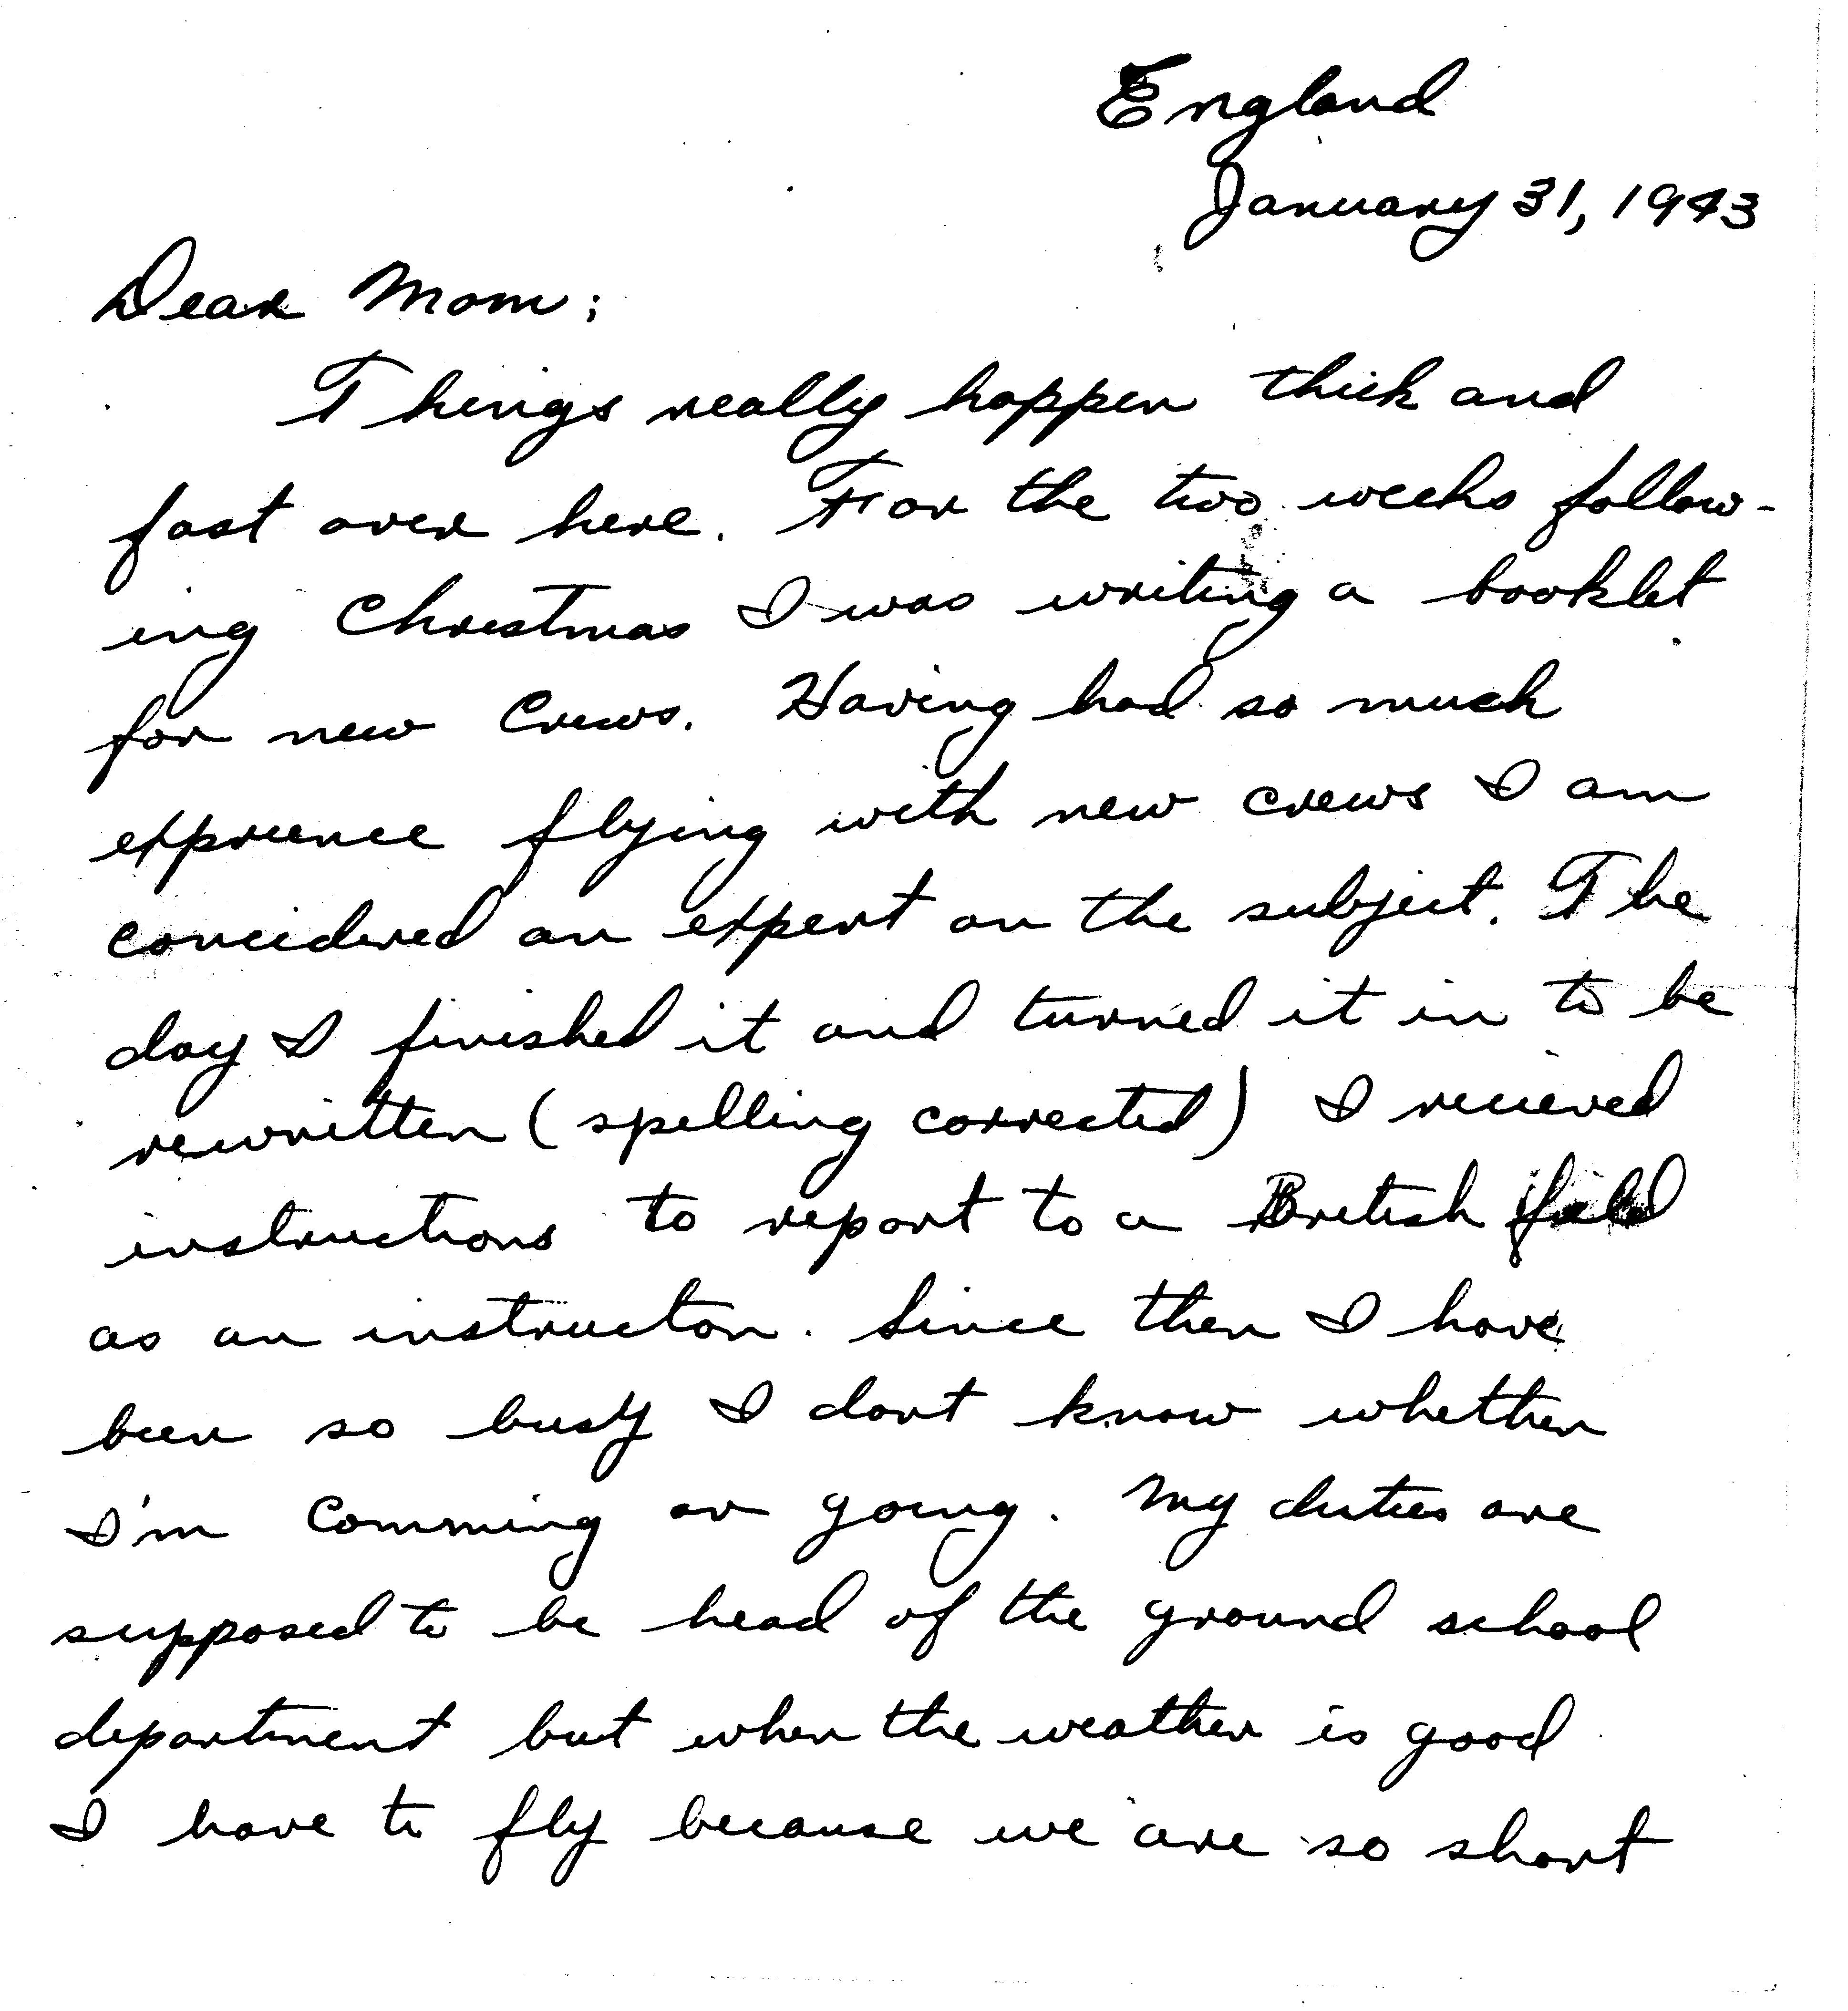 England
January 31, 1943
Dear Mom;
Things really happen thick and
fast over here. For the two weeks follow-
ing Christmas I was writing a booklet
for new Crews. Having had so much
exprience flying with new crews I am
concidered an expert on the subject. The
day I finished it and turned it in to be
rewritten (spelling corrected) I recieved
instructions to report to a British field
as an instructor. Since then I have
been so busy I dont know whether
I'm Comming or going. My duties are
supposed to be head of the ground school
department but when the weather is good
I have to fly because we are so short